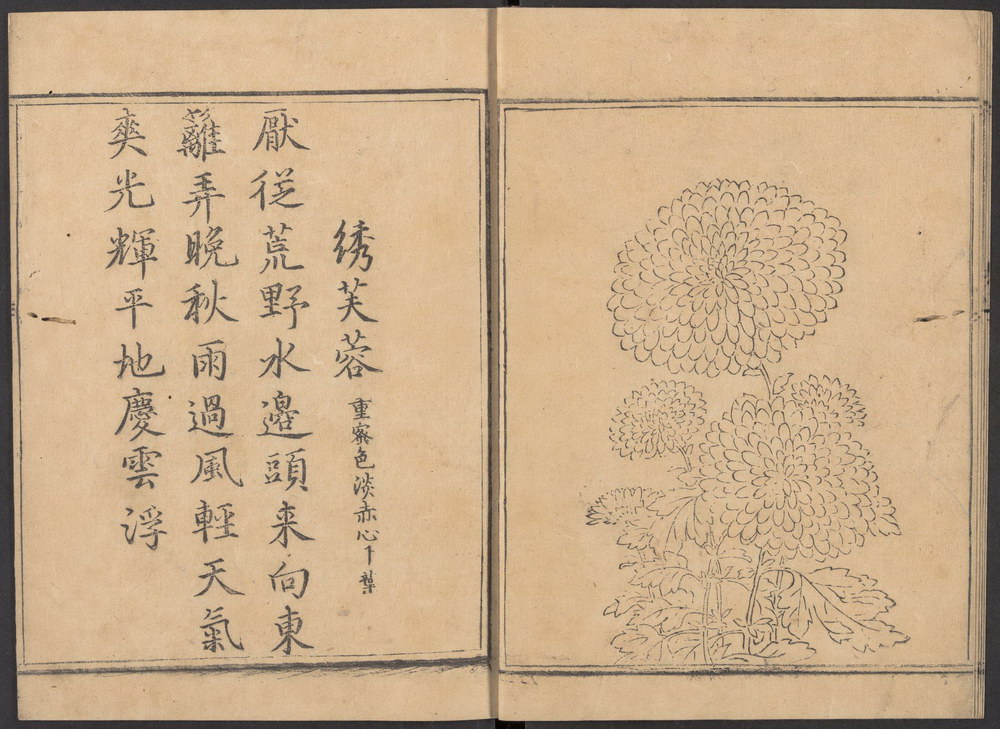 绣芙蓉 重密色淡赤心
厭従荒野水邊頭来向東
籬弄晩秋雨過風輕天氣
爽光輝平地慶雲浮